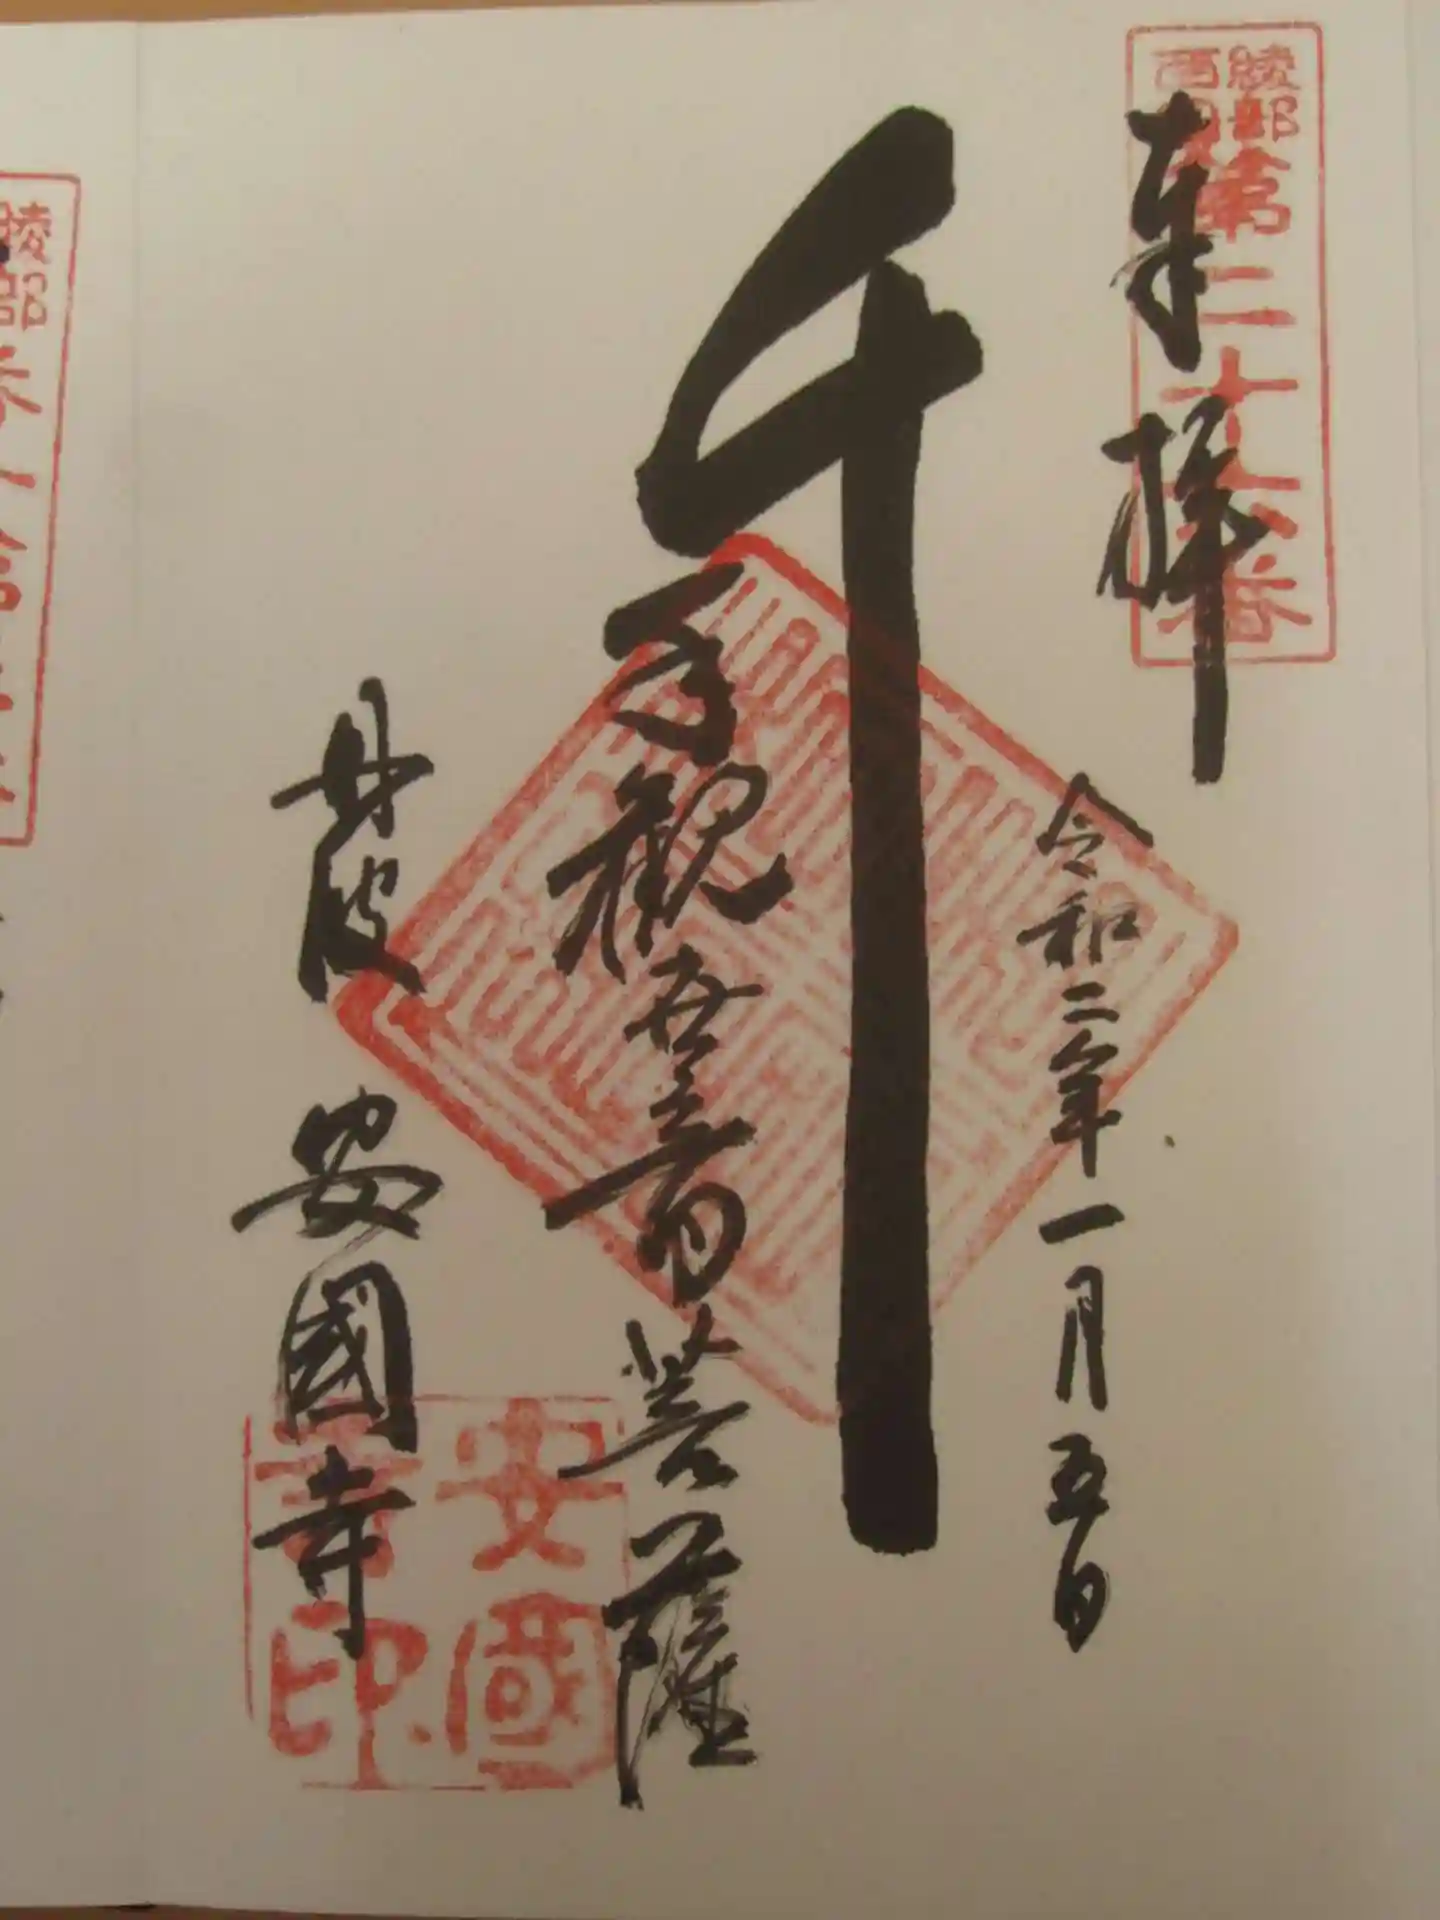 綾部西国第二十六番
奉拝
令和二年一月五日
千手観世音菩薩
丹波 安國寺
安國寺印
綾部